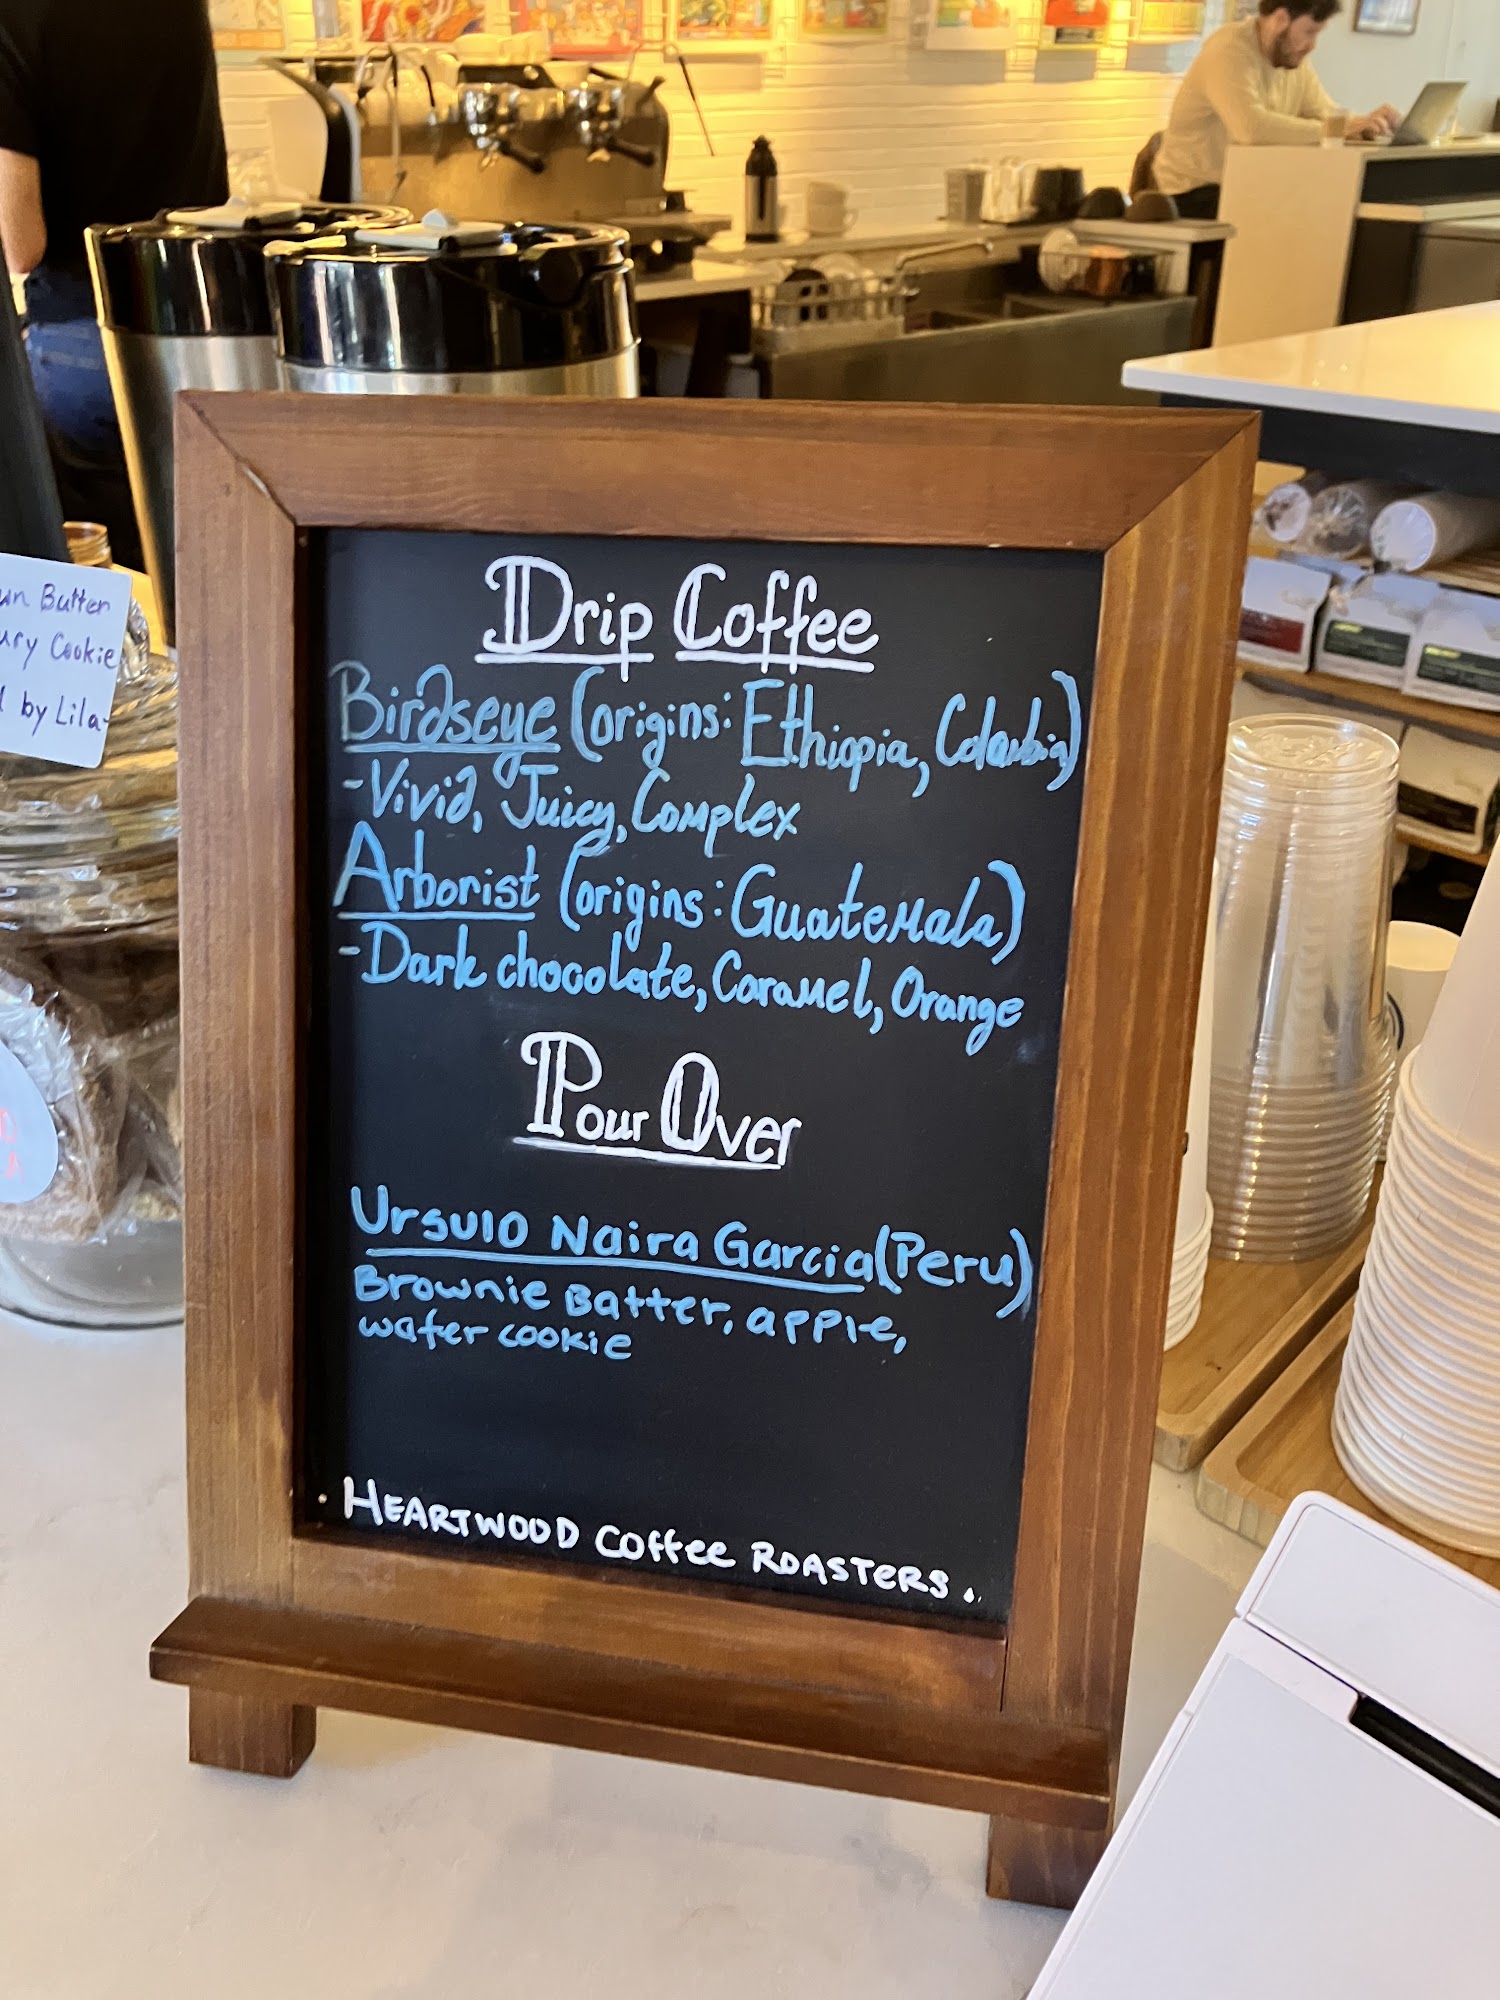 Drip Coffee
Birdseye (origins: Ethiopia, Colombia)
-Vivid, Juicy, Complex
Arborist (origins: Guatemala)
-Dark chocolate, Caramel, Orange
Pour Over
Ursulo Naira Garcia (Peru)
Brownie Batter, apple,
wafer cookie
HEARTWOOD Coffee ROASTERS.
Butter
Cookie
by Lila